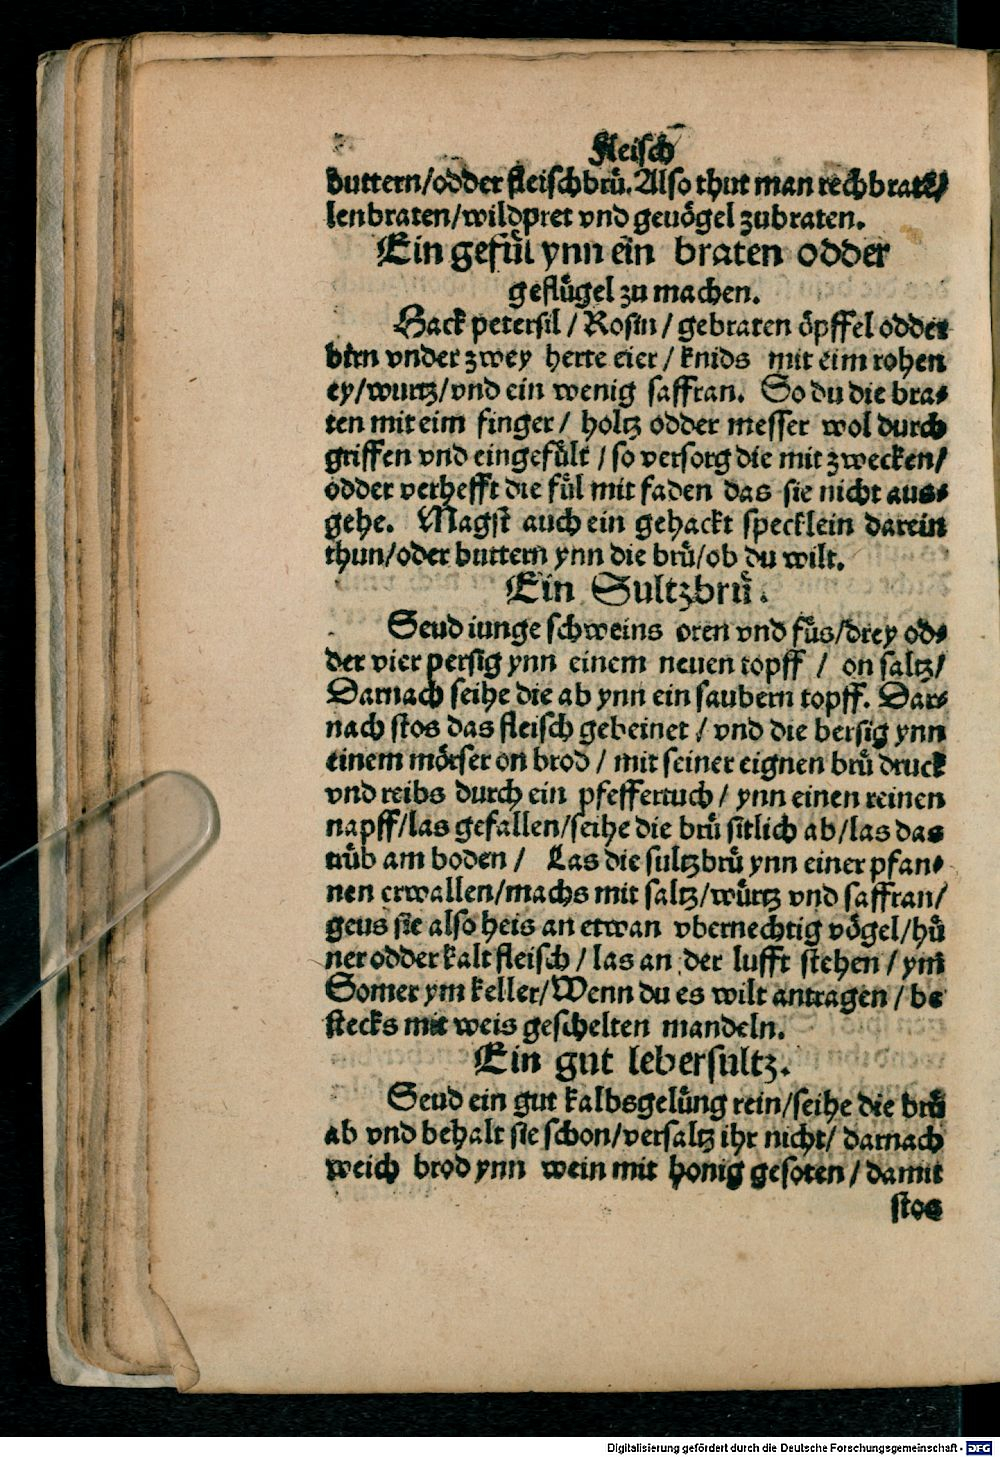 Fleisch
buttern/odder fleischbrů. Also thut man rechbraten/
lenbraten/wildpret vnd geuögel zubraten.
Ein gefůl ynn ein braten odder
geflůgel zu machen.
Hack petersil / Rosin / gebraten öpffel odder
birn vnder zwey herte eier / knids mit eim rohen
ey/wurtz/vnd ein wenig saffran. So du die bra⸗
ten mit eim finger / holtz odder messer wol durch
griffen vnd eingefůlt / so versorg die mit zwecken/
odder verhefft die fůl mit faden das sie nicht aus⸗
gehe. Magst auch ein gehackt specklein darein
thun/oder buttern ynn die brů/ob du wilt.
Ein Sultzbrů.
Seud iunge schweins oren vnd fůs/drey od⸗
der vier persig ynn einem neuen topff / on saltz/
Darnach seihe die ab ynn ein saubern topff. Dar⸗
nach stos das fleisch gebeinet / vnd die bersig ynn
einem mörser on brod / mit seiner eignen brů druck
vnd reibs durch ein pfeffertuch / ynn einen reinen
napff/las gefallen/seihe die brů sitlich ab/las das
trůb am boden / Las die sultzbrů ynn einer pfan⸗
nen erwallen/machs mit saltz/wůrtz vnd saffran/
geus sie also heis an etwan vbernechtig vögel/hů
ner odder kalt fleisch / las an der lufft stehen / ym
Somer ym keller/Wenn du es wilt antragen / be
stecks mit weis geschelten mandeln.
Ein gut lebersultz.
Seud ein gut kalbsgelůng rein/seihe die brů
ab vnd behalt sie schon/versaltz ihr nicht/ darnach
weich brod ynn wein mit honig gesoten / damit
stos
Digitalisierung gefördert durch die Deutsche Forschungsgemeinschaft - DFG